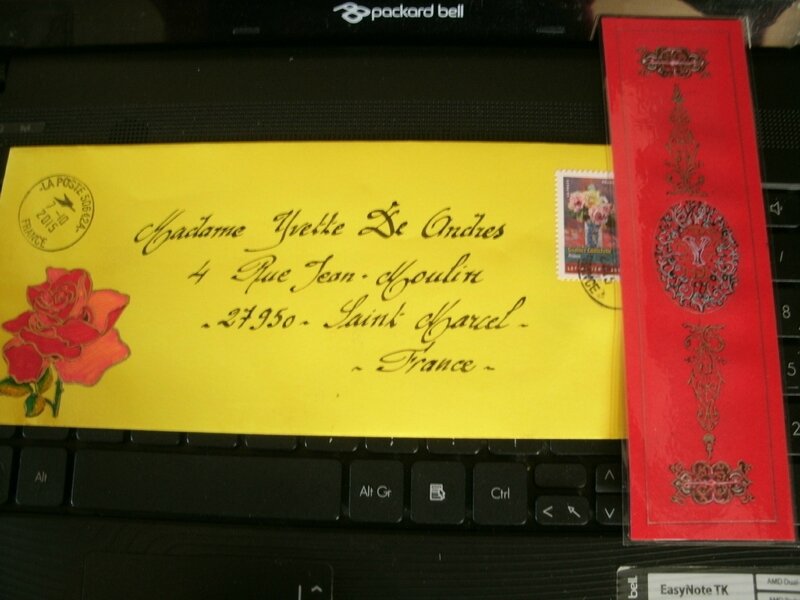 packard bell
LA POSTE 50842A
7-10
2015
FRANCE
Madame Yvette De Andres
4 Rue Jean-Moulin
-27950- Saint Marcel-
~ France ~
Y
Alt
Alt Gr
Ctrl
8
5
2
bell
EasyNote TK
AMD Dual-